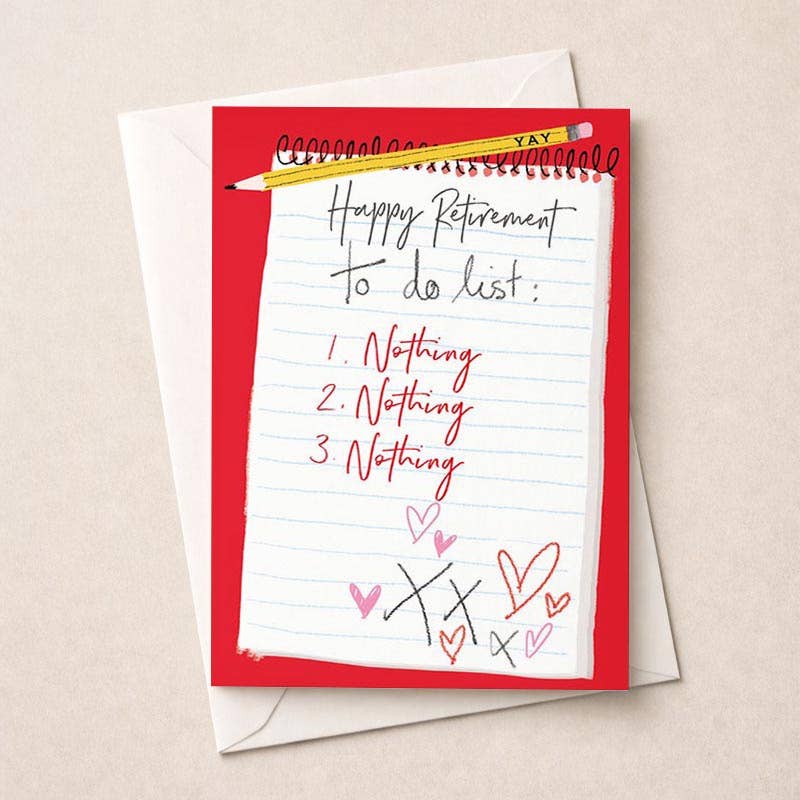 YAY
Happy Retirement
to do list:
1. Nothing
2. Nothing
3. Nothing
X x x